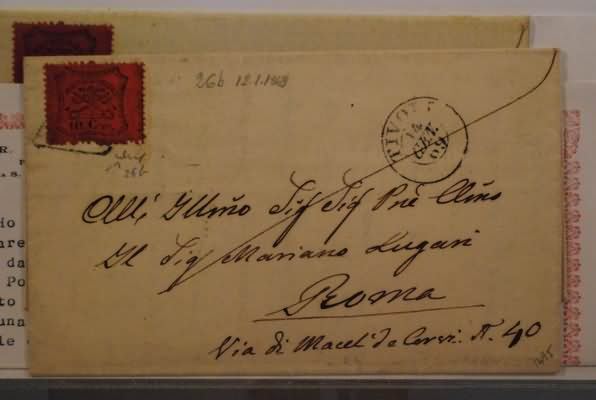 26b 12.1.1869
10 Cen
TIVOLI
14
GEN.
69
26b
All' Illmo Sig Sig Pne Clmo
Il Sig Mariano Lugari
Roma
Via di Macel' de Corvi. N. 40
R.
io
da
Po
to
una
e